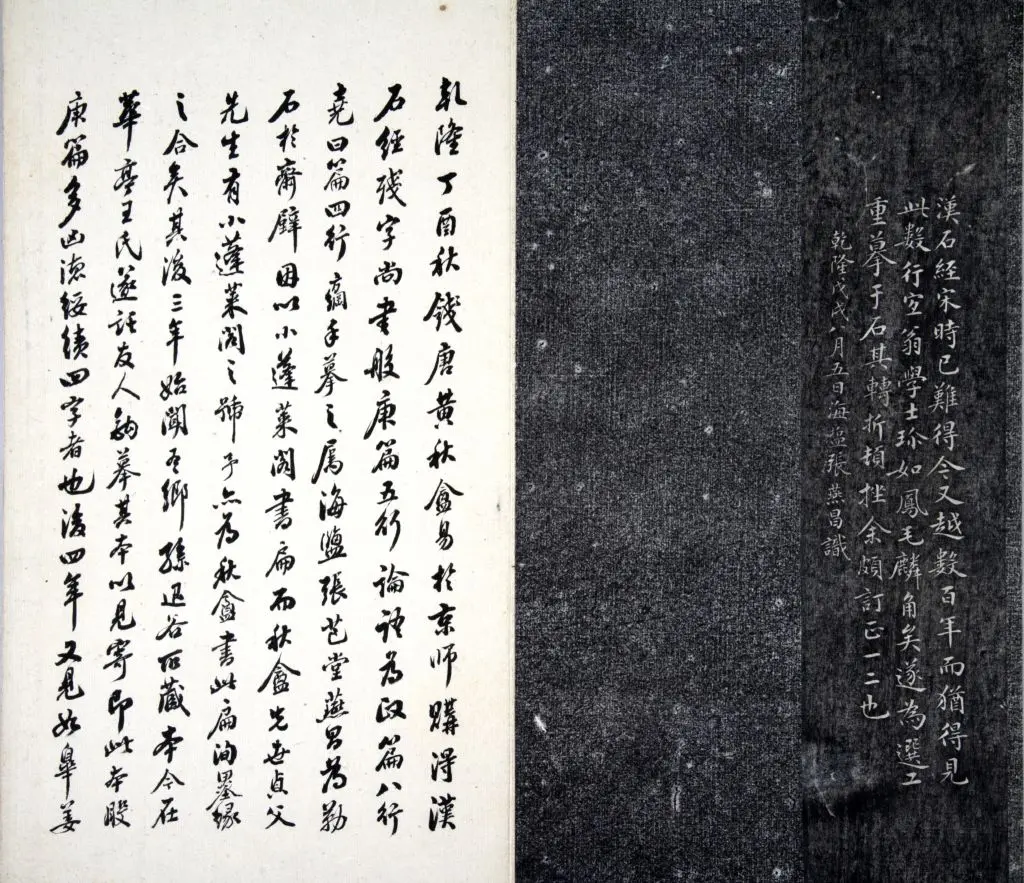 漢石經宋時已難得今又越數百年而猶得見
此數行翁學士珎如鳳毛麟角矣遂為選工
重摹于石其轉折損挫余頗訂正一二也
乾隆戊戌八月五日海鹽張燕昌識
乾隆丁酉秋錢唐黃秋盦易於京師購得漢
石經殘字尚書般庚篇五行論語為政篇八行
堯曰篇四行手摹之属海鹽張芑堂燕昌為勒
石於齋壁因以小蓬萊閣書扁而秋盦先世貞父
先生有小蓬萊閣之號予亦為秋盦書此扁洵墨緣
之合矣其後三年始聞吾鄉孫退谷所藏本今在
華亭王氏遂託友人鉤摹其本以見寄即此本般
庚篇多凶德綏績四字者也後四年又見如皋姜